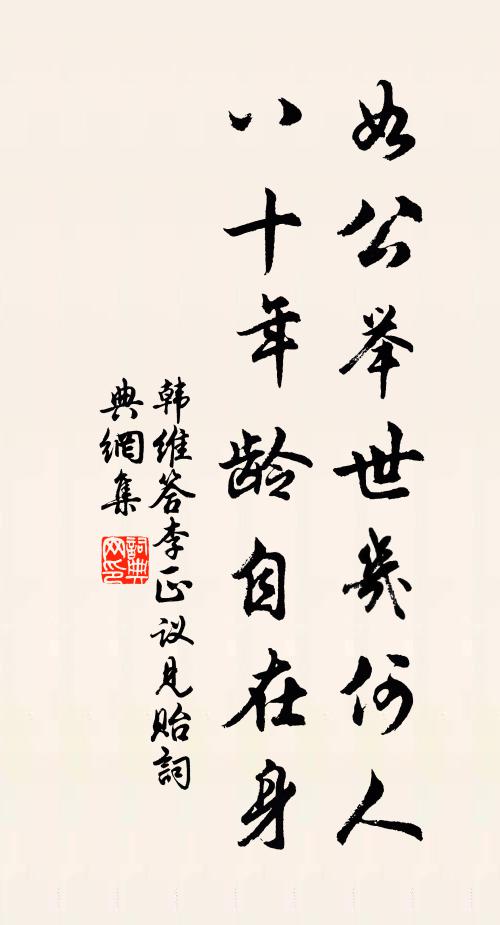 如公举世幾何人
八十年龄自在身
韩维答李正议见贻詞
典網集
詞典
网印